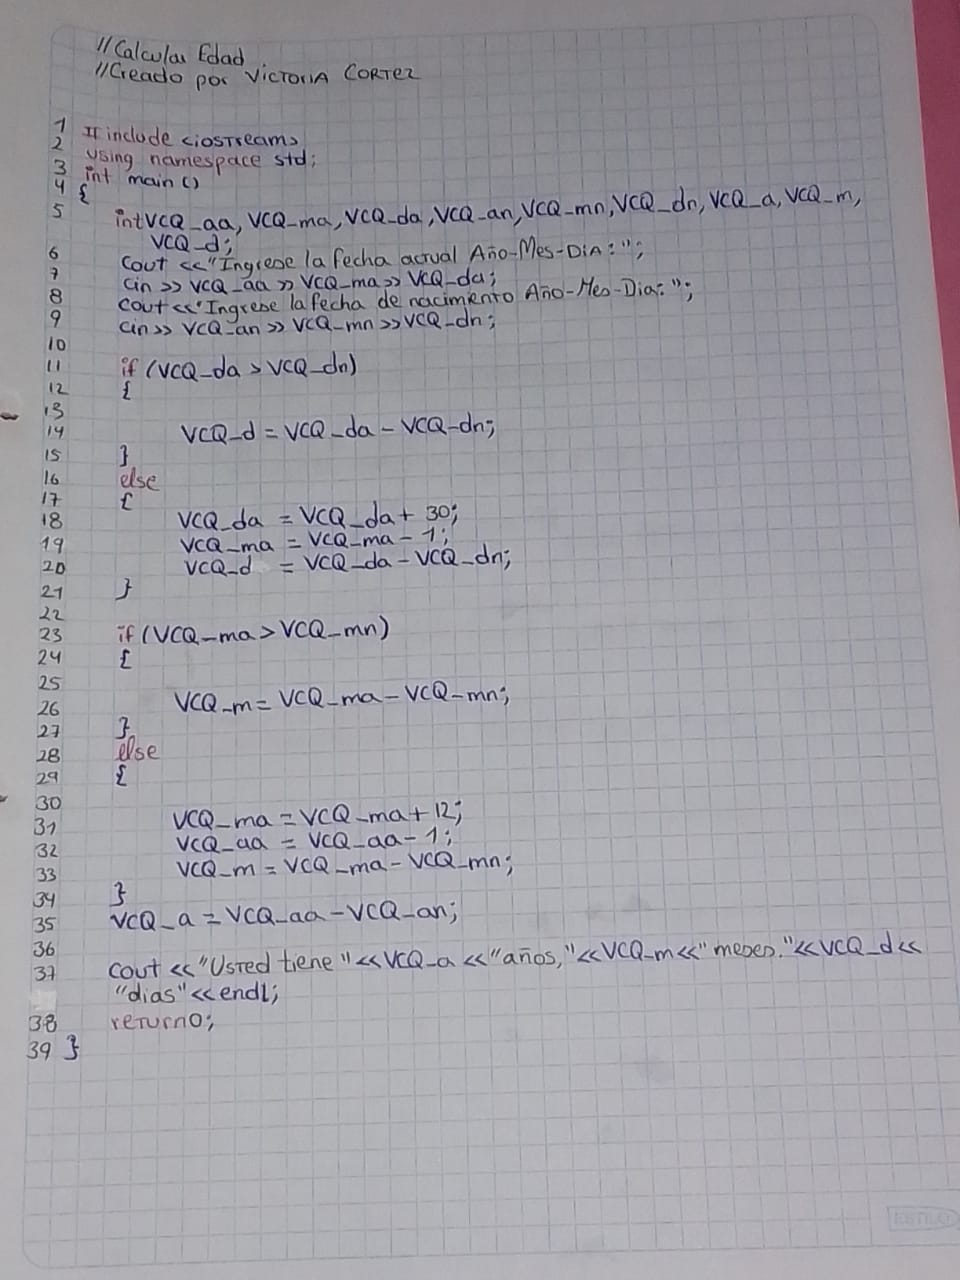 //Calcular Edad
//Creado por VICTORIA CORTEZ
1 # include <iostream>
2 using namespace std;
3 int main ()
4 {
5 int VCQ_aa, VCQ_ma, VCQ_da, VCQ_an, VCQ_mn, VCQ_dn, VCQ_a, VCQ_m,
VCQ_d;
6 cout <<"Ingrese la fecha actual Año-Mes-Dia:";
7 cin >> VCQ_aa >> VCQ_ma >> VCQ_da;
8 cout <<"Ingrese la fecha de nacimiento Año-Mes-Dia:";
9 cin >> VCQ_an >> VCQ_mn >> VCQ_dn;
10
11 if (VCQ_da > VCQ_dn)
12 {
13
14 VCQ_d = VCQ_da - VCQ_dn;
15 }
16 else
17 {
18 VCQ_da = VCQ_da + 30;
19 VCQ_ma = VCQ_ma - 1;
20 VCQ_d = VCQ_da - VCQ_dn;
21 }
22
23 if (VCQ_ma > VCQ_mn)
24 {
25
26 VCQ_m = VCQ_ma - VCQ_mn;
27 }
28 else
29 {
30
31 VCQ_ma = VCQ_ma + 12;
32 VCQ_aa = VCQ_aa - 1;
33 VCQ_m = VCQ_ma - VCQ_mn;
34 }
35 VCQ_a = VCQ_aa - VCQ_an;
36
37 cout << "Usted tiene " << VCQ_a << "años," << VCQ_m << "meses." << VCQ_d <<
"dias" << endl;
38 return 0;
39 }
ESTILO